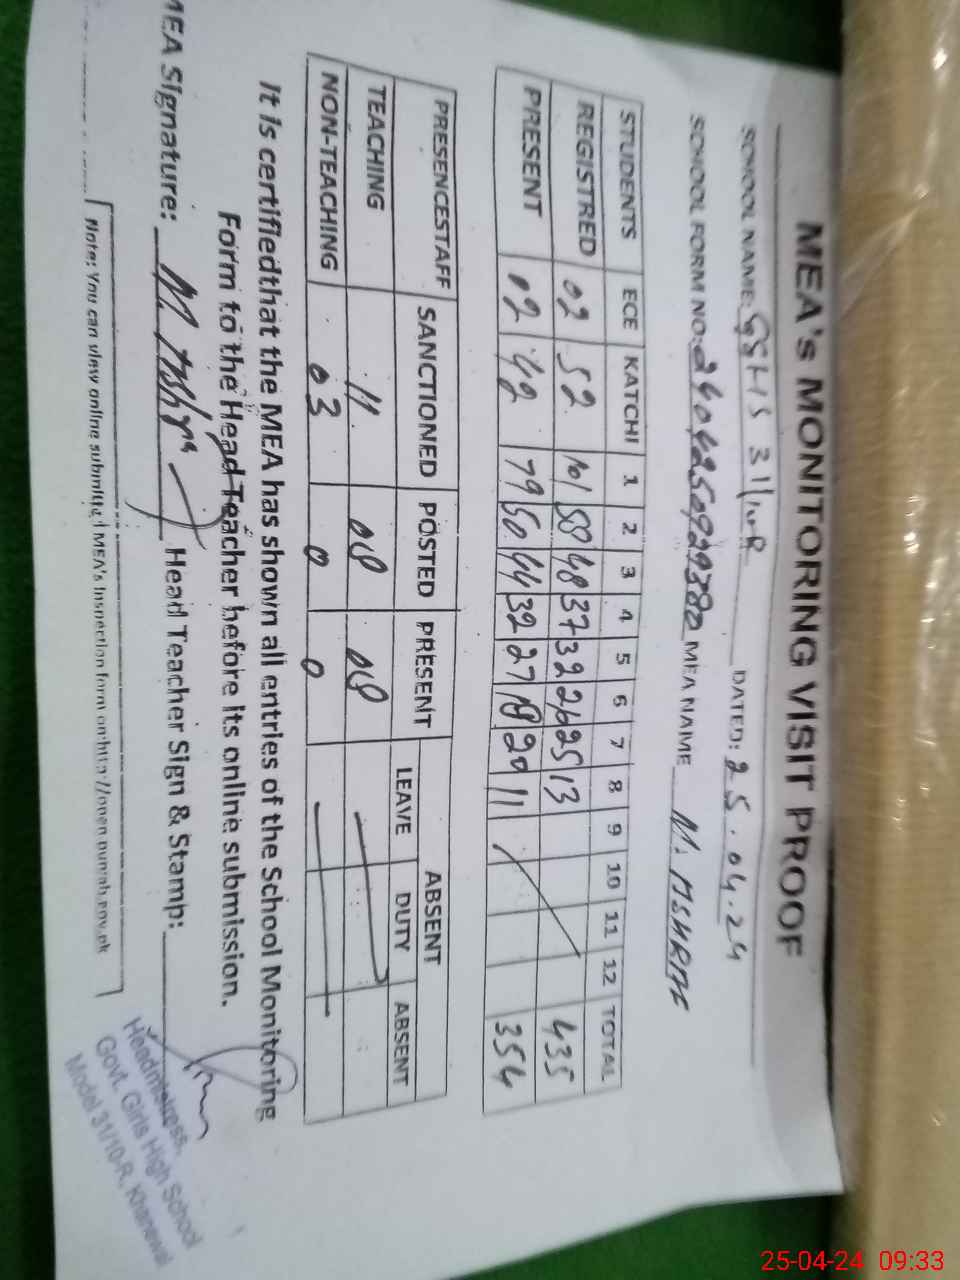 MEA's MONITORING VISIT PROOF
SCHOOL NAME: GGHS 31/10R DATED: 25.04.24
SCHOOL FORM NO: MEA NAME M. ASHRAF
STUDENTS ECE KATCHI 1 2 3 4 5 6 7 8 9 10 11 12 TOTAL
REGISTRED 02 52 101 58 48 37 32 25 13 435
PRESENT 02 42 79 50 44 32 27 18 20 11 354
PRESENCESTAFF SANCTIONED POSTED PRESENT ABSENT
LEAVE DUTY ABSENT
TEACHING 11 08 08
NON-TEACHING 03 0 0
It is certifiedthat the MEA has shown all entries of the School Monitoring
Form to the Head Teacher before its online submission.
MEA Signature: M. Ashraf Head Teacher Sign & Stamp:
Headmistress,
Govt. Girls High School
Model 31/10-R, Khanewal
Note: You can view online submitted MEA's Inspection form on:http://open.punjab.gov.pk
25-04-24 09:33